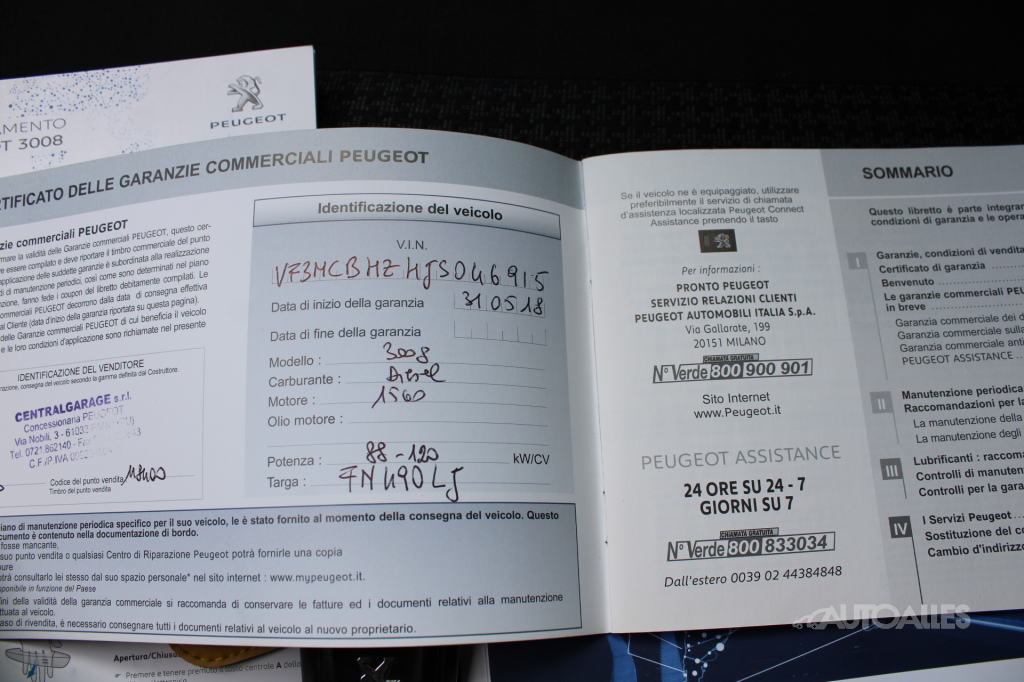 AMENTO
T 3008
PEUGEOT
RTIFICATO DELLE GARANZIE COMMERCIALI PEUGEOT
zie commerciali PEUGEOT
rmare la validità delle Garanzie commerciali PEUGEOT, questo cer-
ve essere compilato e deve riportare il timbro commerciale del punto
applicazione delle suddette garanzie è subordinata alla realizzazione
di di manutenzione periodici, così come sono determinati nel piano
nzione, fanno fede i coupon del libretto debitamente compilati. Le
ommerciali PEUGEOT decorrono dalla data di consegna effettiva
al Cliente (data d'inizio della garanzia riportata su questa pagina).
delle Garanzie commerciali PEUGEOT di cui beneficia il veicolo
e le loro condizioni d'applicazione sono richiamate nel presente
IDENTIFICAZIONE DEL VENDITORE
razione, consegna del veicolo secondo la gamma definita dal Costruttore.
CENTRALGARAGE s.r.l.
Concessionaria PEUGEOT
Via Nobili, 3 - 61032
Tel. 0721.862140 - Fax
C.F./P.IVA
Codice del punto vendita
Timbro del punto vendita
Identificazione del veicolo
V.I.N.
VF3MCBHZHJS046915
Data di inizio della garanzia 310518
Data di fine della garanzia
Modello : 3008
Carburante : Diesel
Motore : 1560
Olio motore :
Potenza : 88-120 kW/CV
Targa : FN490LJ
piano di manutenzione periodica specifico per il suo veicolo, le è stato fornito al momento della consegna del veicolo. Questo
cumento è contenuto nella documentazione di bordo.
fosse mancante,
suo punto vendita o qualsiasi Centro di Riparazione Peugeot potrà fornirle una copia
pure
otrà consultarlo lei stesso dal suo spazio personale* nel sito internet : www.mypeugeot.it.
isponibile in funzione del Paese
fini della validità della garanzia commerciale si raccomanda di conservare le fatture ed i documenti relativi alla manutenzione
ttuata al veicolo.
caso di rivendita, è necessario consegnare tutti i documenti relativi al veicolo al nuovo proprietario.
Apertura/Chiusu
Premere e tenere premuto il tasto centrale A della
Se il veicolo ne è equipaggiato, utilizzare
preferibilmente il servizio di chiamata
d'assistenza localizzata Peugeot Connect
Assistance premendo il tasto
Per informazioni :
PRONTO PEUGEOT
SERVIZIO RELAZIONI CLIENTI
PEUGEOT AUTOMOBILI ITALIA S.p.A.
Via Gallarate, 199
20151 MILANO
CHIAMATA GRATUITA
N°Verde 800 900 901
Sito Internet
www.Peugeot.it
PEUGEOT ASSISTANCE
24 ORE SU 24 - 7
GIORNI SU 7
CHIAMATA GRATUITA
N°Verde 800 833034
Dall'estero 0039 02 44384848
SOMMARIO
Questo libretto è parte integran
condizioni di garanzia e le opera
I
Garanzie, condizioni di vendita
Certificato di garanzia
Benvenuto
Le garanzie commerciali PEU
in breve
Garanzia commerciale dei d
Garanzia commerciale sulla
Garanzia commerciale anti
PEUGEOT ASSISTANCE
II
Manutenzione periodica
Raccomandazioni per la
La manutenzione della
La manutenzione degli
III
Lubrificanti : raccoma
Controlli di manuten
Controlli per la gara
IV
I Servizi Peugeot
Sostituzione del co
Cambio d'indirizzo
AUTOALLES